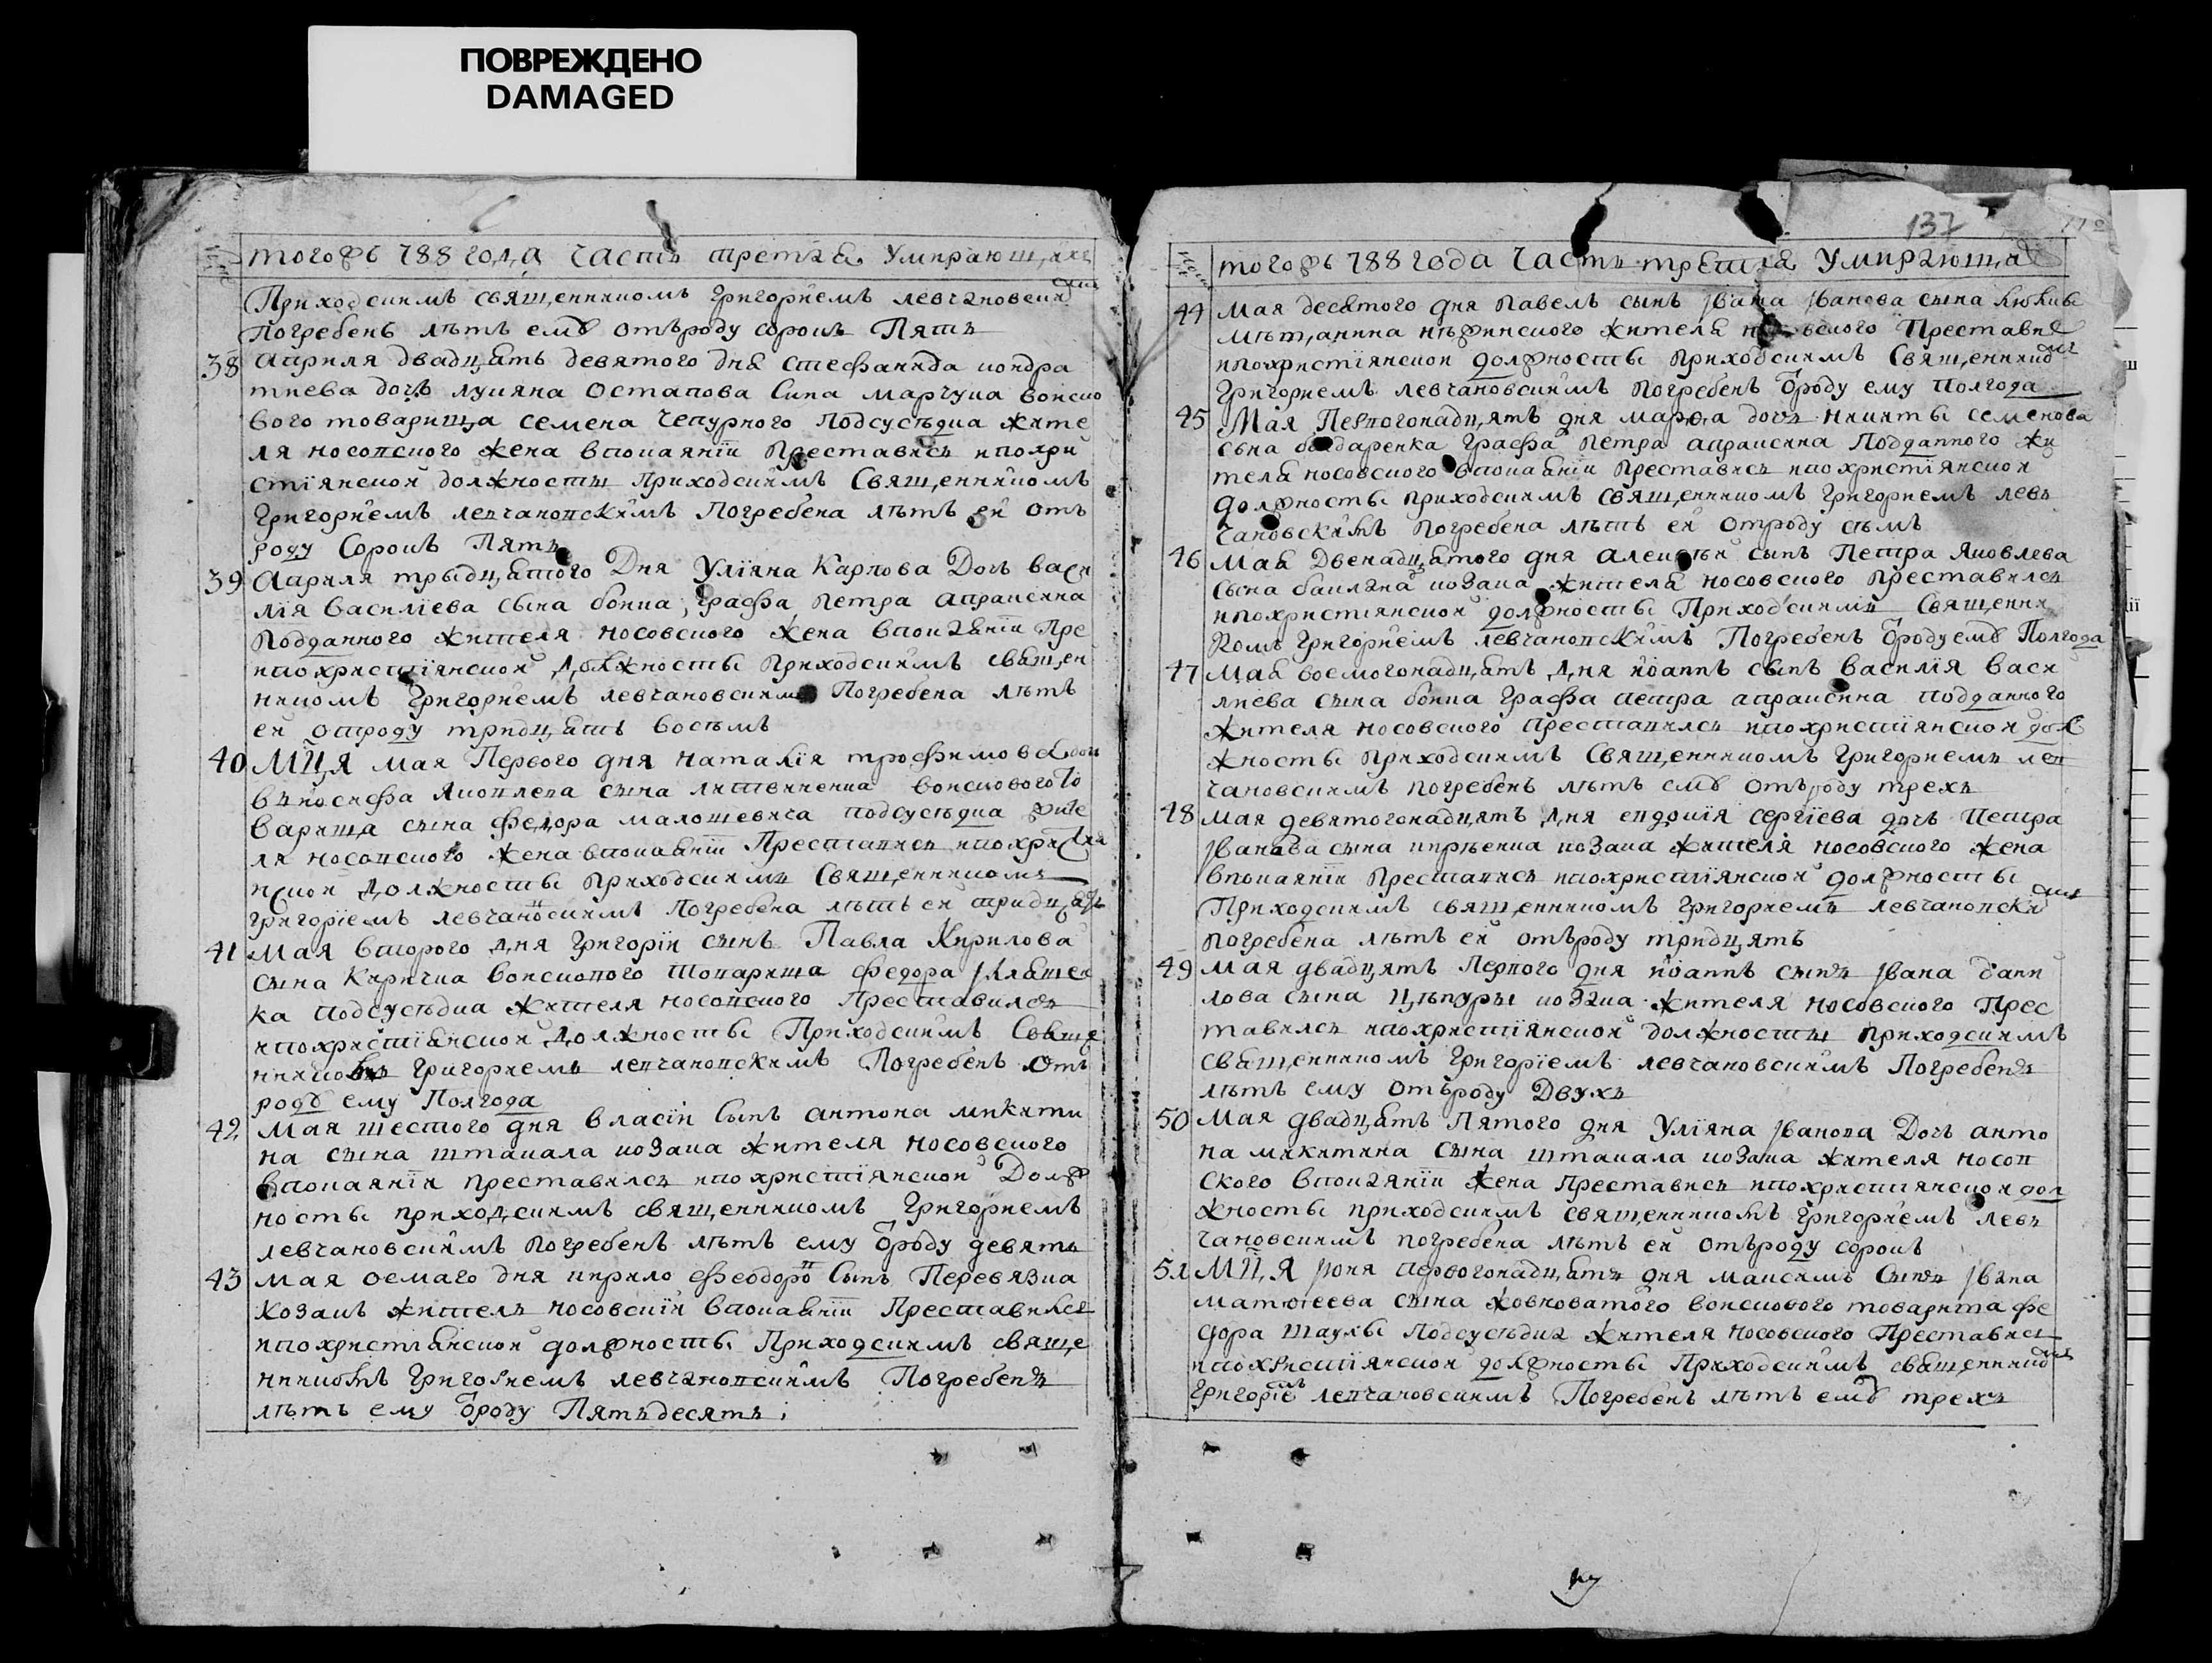 ПОВРЕЖДЕНО
DAMAGED
тогожъ 788 года часть третяя Умирающихъ
Приходскимъ священникомъ Григориемъ левчановским
погребенъ лѣтъ ему отъроду сорокъ Пять
38 Априля двадцять девятого дня стефанида кондра
тиева дочъ лукяна Остапова Сина марчука войско
вого товарища семена чепурного Подсусѣдка жите
ля носовского жена впокаянїи Преставись ипохри
стїянской должносты Приходскимъ Священникомъ
Григориемъ левчановскимъ Погребена лѣтъ ей отъ
роду Сорокъ Пять
39 Априля трыдцятого Дня Улїяна Карпова Дочъ васи
лїя василїева сына бойка, графа петра апраксина
Подданного жителя носовского жена впокаянїи Пре
ипохристїянской должносты Приходскимъ священ
никомъ Григориемъ левчановскимъ Погребена лѣтъ
ей отроду тридцять восѣмъ
40 Мця мая Первого дня наталїя трофимова доч
иосифа Яковлева сына литвиненка войскового то
варища сына федора малошевича подсусѣдка жите
ля носовского жена впокаянїи Преставись ипохристия
нской должносты Приходскимъ Священникомъ
григорїемъ левчановскимъ Погребена лѣтъ ей тридцять
41 мая второго дня Григорїй сынъ Павла Кирилова
сына Киричка войскового товарища федора
ка подсусѣдка жителя носовского Преставился
ипохристїянской должносты Приходскимъ Свяще
нникомъ Григориемъ левчановскимъ Погребенъ отъ
роду ему Полгода
42 мая шестого дня власїй сынъ антона микити
на сына штанала козака жителя носовского
впокаянїи преставился ипохристїянской Долж
носты приходскимъ священникомъ Григориемъ
левчановскимъ погребенъ лѣтъ ему ѿроду девять
43 мая осмаго дня кирило феодоров Сынъ Перевязка
Козакъ жителъ носовскїй впокаянїи Преставился
ипохристиянской должносты Приходскимъ свяще
нникомъ Григориемъ левчановскимъ Погребенъ
лѣтъ ему ѿроду Пятьдесять
137
тогожъ 788 года Часть третяя Умирающихъ
44 мая десятого дня павелъ сынъ Ивана Иванова сына
мѣщанина нѣжинского жителя носовского Преставися
ипохристїянской должносты приходскимъ Священником
Григориемъ левчановскимъ погребенъ ѿроду ему полгода
45 Мая Первогонадцять дня марѳа дочъ никиты семенова
сына бондаренка графа петра апраксина Подданного жи
теля носовского впокаянїи преставись ипохристїянской
должносты приходскимъ священникомъ Григориемъ левъ
чановскимъ погребена лѣтъ ей отроду сѣмъ
46 Мая Двенадцятого дня алексѣй сынъ Петра Яковлева
сына козака жителя носовского преставился
ипохристиянской должносты Приходскимъ Священни
комъ Григориемъ левчановскимъ Погребенъ ѿроду ему Полгода
47 Мая восмогонадцять дня иоаннъ сынъ василїя васи
лиева сына бойка графа петра апраксина подданного
жителя носовского преставился ипохристїянской дол
жносты приходскимъ Священникомъ Григориемъ лев
чановскимъ погребенъ лѣтъ ему отъроду трехъ
48 мая девятогонадцять дня евдокїя сергїева дочъ Петра
Иванова сына кирѣенка козака жителя носовского жена
впокаянїи преставись ипохристїянской должносты
Приходскимъ священникомъ Григориемъ левчановским
погребена лѣтъ ей отъроду тридцять
49 мая двадцять Первого дня иоаннъ сынъ Ивана дани
лова сына Цѣпуры козака жителя носовского Прес
тавился ипохристїянской должносты приходскимъ
священникомъ Григорїемъ левчановскимъ Погребенъ
лѣтъ ему отъроду Двухъ
50 Мая двадцять Пятого дня Улїяна Иванова Дочъ анто
на микитина сына штанала козака жителя носов
ского впокаянїи жена преставись ипохристиянской дол
жносты приходскимъ священникомъ Григориемъ левъ
чановскимъ погребена лѣтъ ей отъроду сорокъ
51 Мця июня первогонадцять дня максимъ Сынъ Ивана
матѳеева сына жовковатого войскового товарища фе
дора шаулы подсусѣдка жителя носовского Преставись
ипохристїянской должносты Приходскимъ священником
Григорїемъ левчановскимъ Погребенъ лѣтъ ему трехъ